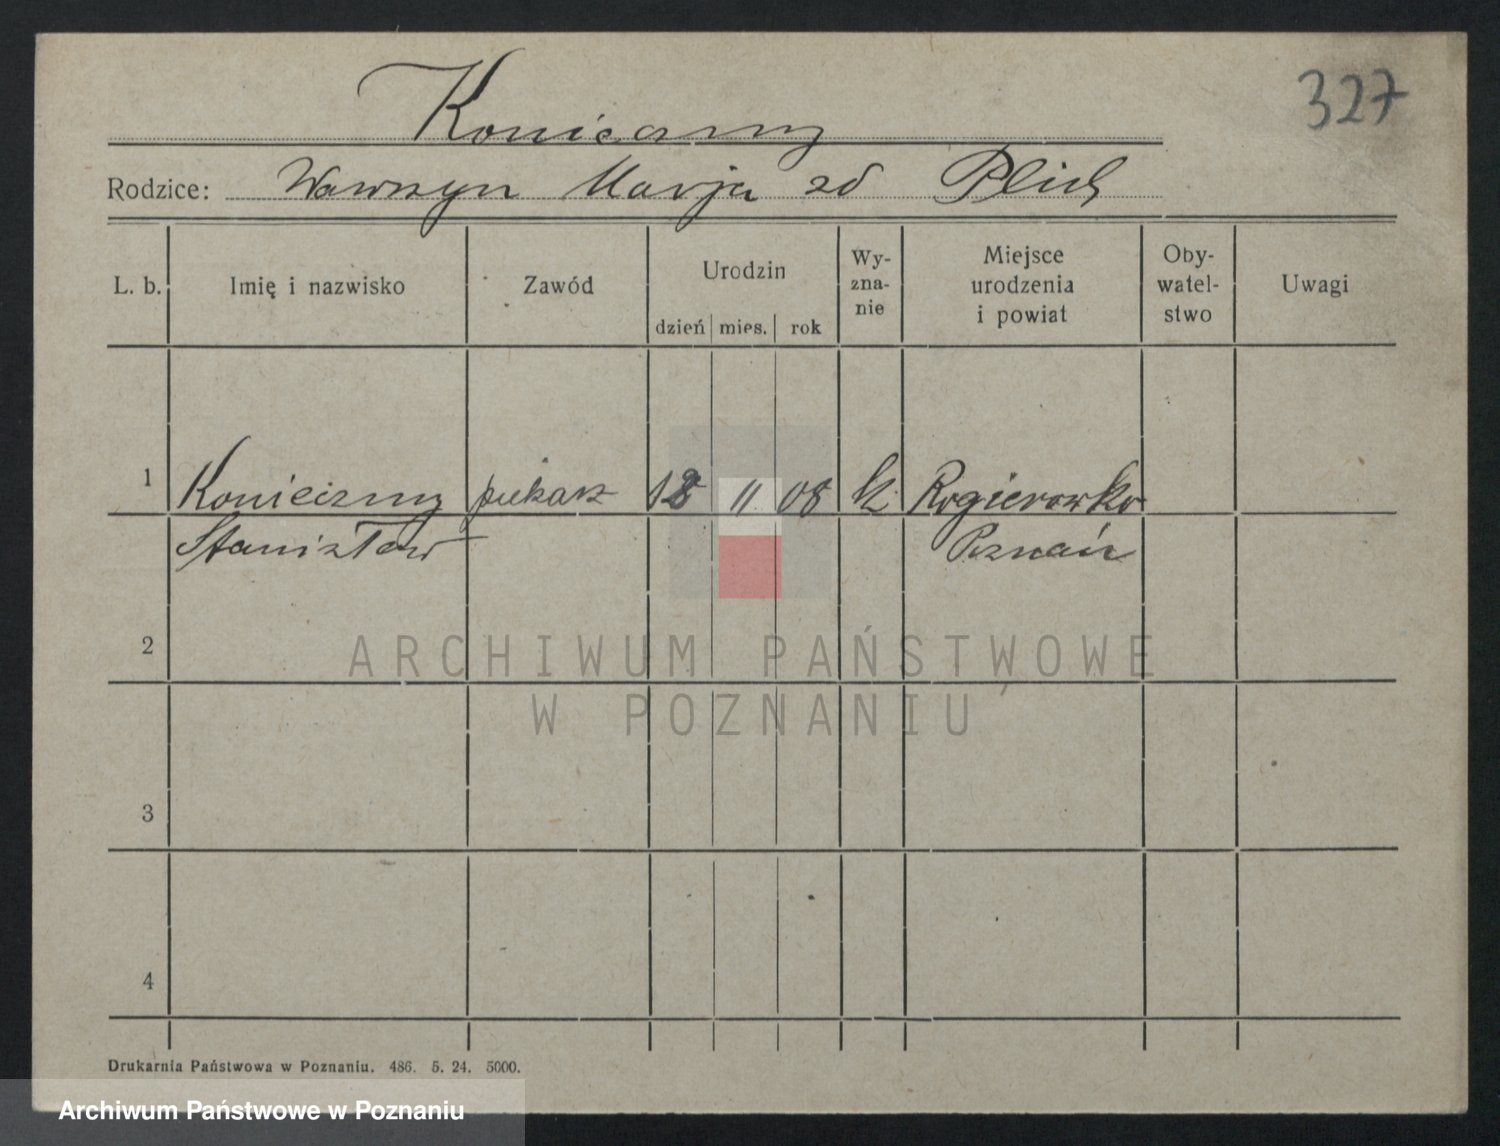 327
Konieczny
Rodzice: Wawrzyn Marja zd Plich
L. b.
Imię i nazwisko
Zawód
Urodzin
dzień mies. rok
Wy-
zna-
nie
Miejsce
urodzenia
i powiat
Oby-
watel-
stwo
Uwagi
1 Konieczny piekarz 11 08 k Rogierowko
Stanisław Poznań
2
3
4
ARCHIWUM PAŃSTWOWE
W POZNANIU
Drukarnia Państwowa w Poznaniu. 486. 5. 24. 5000.
Archiwum Państwowe w Poznaniu